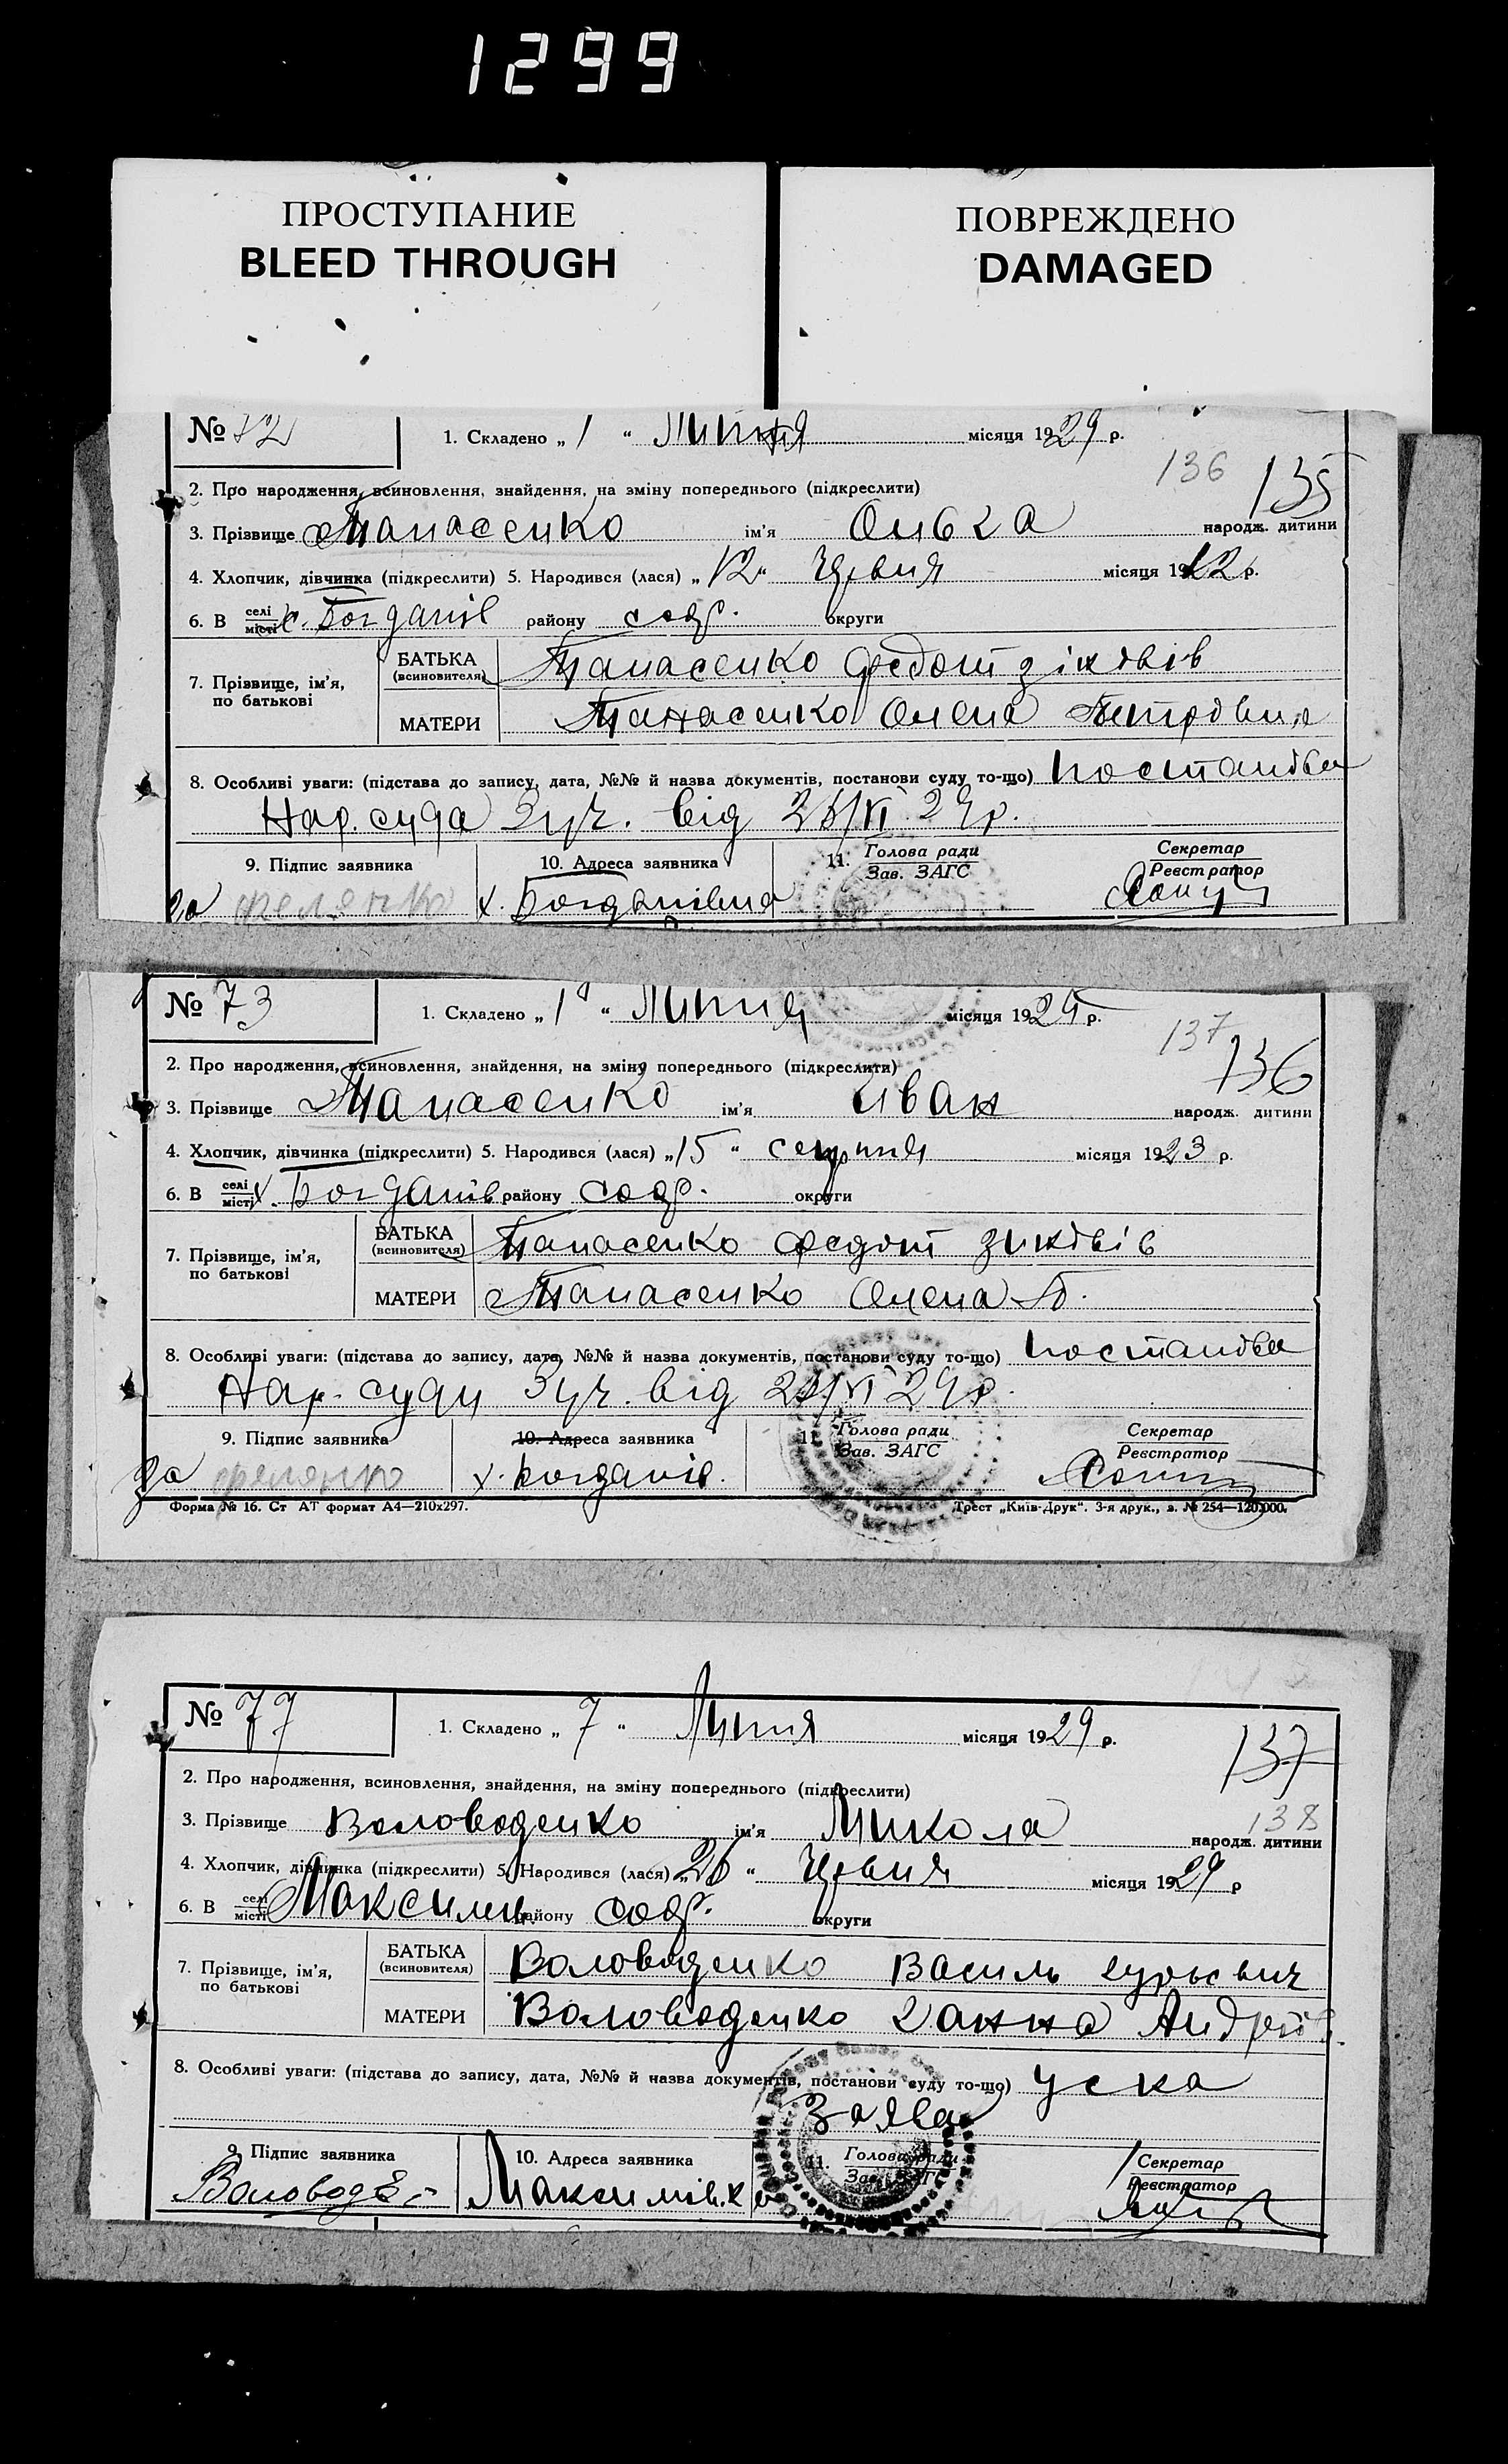 1299
ПРОСТУПАНИЕ
BLEED THROUGH
ПОВРЕЖДЕНО
DAMAGED
№ 72
1. Складено „ 1 “ Липня місяця 1929 р.
136 135
2. Про народження, всиновлення, знайдення, на зміну попереднього (підкреслити)
3. Прізвище Панасенко ім'я Ольга народж. дитини
4. Хлопчик, дівчинка (підкреслити) 5. Народився (лася) „ 12 “ Червня місяця 19 р.
6. В селі місті х. Богданів району округи
7. Прізвище, ім'я, по батькові
БАТЬКА (всиновителя) Панасенко Федот
МАТЕРИ Панасенко Олена Петровна
8. Особливі уваги: (підстава до запису, дата, №№ й назва документів, постанови суду то-що) Постанова
Нар. суда 3 уч. від 29 р.
9. Підпис заявника 10. Адреса заявника 11. Голова ради Зав. ЗАГС Секретар Реєстратор
за х.
№ 73
1. Складено „ 1 “ Липня місяця 1929 р.
137 136
2. Про народження, всиновлення, знайдення, на зміну попереднього (підкреслити)
3. Прізвище Панасенко ім'я Иван народж. дитини
4. Хлопчик, дівчинка (підкреслити) 5. Народився (лася) „ 15 “ серпня місяця 1923 р.
6. В селі місті х. Богданів району округи
7. Прізвище, ім'я, по батькові
БАТЬКА (всиновителя) Панасенко Федот
МАТЕРИ Панасенко Олена П.
8. Особливі уваги: (підстава до запису, дата, №№ й назва документів, постанови суду то-що) Постанова
Нар. суду 3 уч. від 29 р.
9. Підпис заявника 10. Адреса заявника 11. Голова ради Зав. ЗАГС Секретар Реєстратор
за х. Богданів.
Форма № 16. Ст АТ формат А4—210х297. Трест „Київ-Друк“. 3-я друк., з. № 254—120,000.
№ 77
1. Складено „ 7 “ Липня місяця 1929 р.
137
2. Про народження, всиновлення, знайдення, на зміну попереднього (підкреслити)
3. Прізвище Воловоденко ім'я Микола народж. дитини
138
4. Хлопчик, дівчинка (підкреслити) 5. Народився (лася) „ 26 “ Червня місяця 1929 р
6. В селі місті району округи
7. Прізвище, ім'я, по батькові
БАТЬКА (всиновителя) Воловоденко Василь
МАТЕРИ Воловоденко Ганна
8. Особливі уваги: (підстава до запису, дата, №№ й назва документів, постанови суду то-що) Усна
Заява
9. Підпис заявника 10. Адреса заявника 11. Голова ради Зав. ЗАГС Секретар Реєстратор
Максимівка